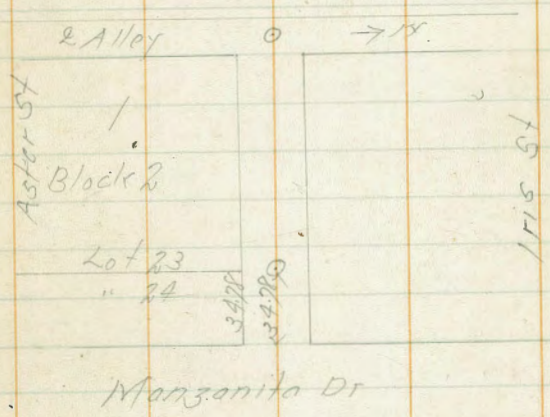 Alley
Aster St
1
Block 2
Lot 23
" 24
34.78
34.78
Iris St
Manzanita Dr